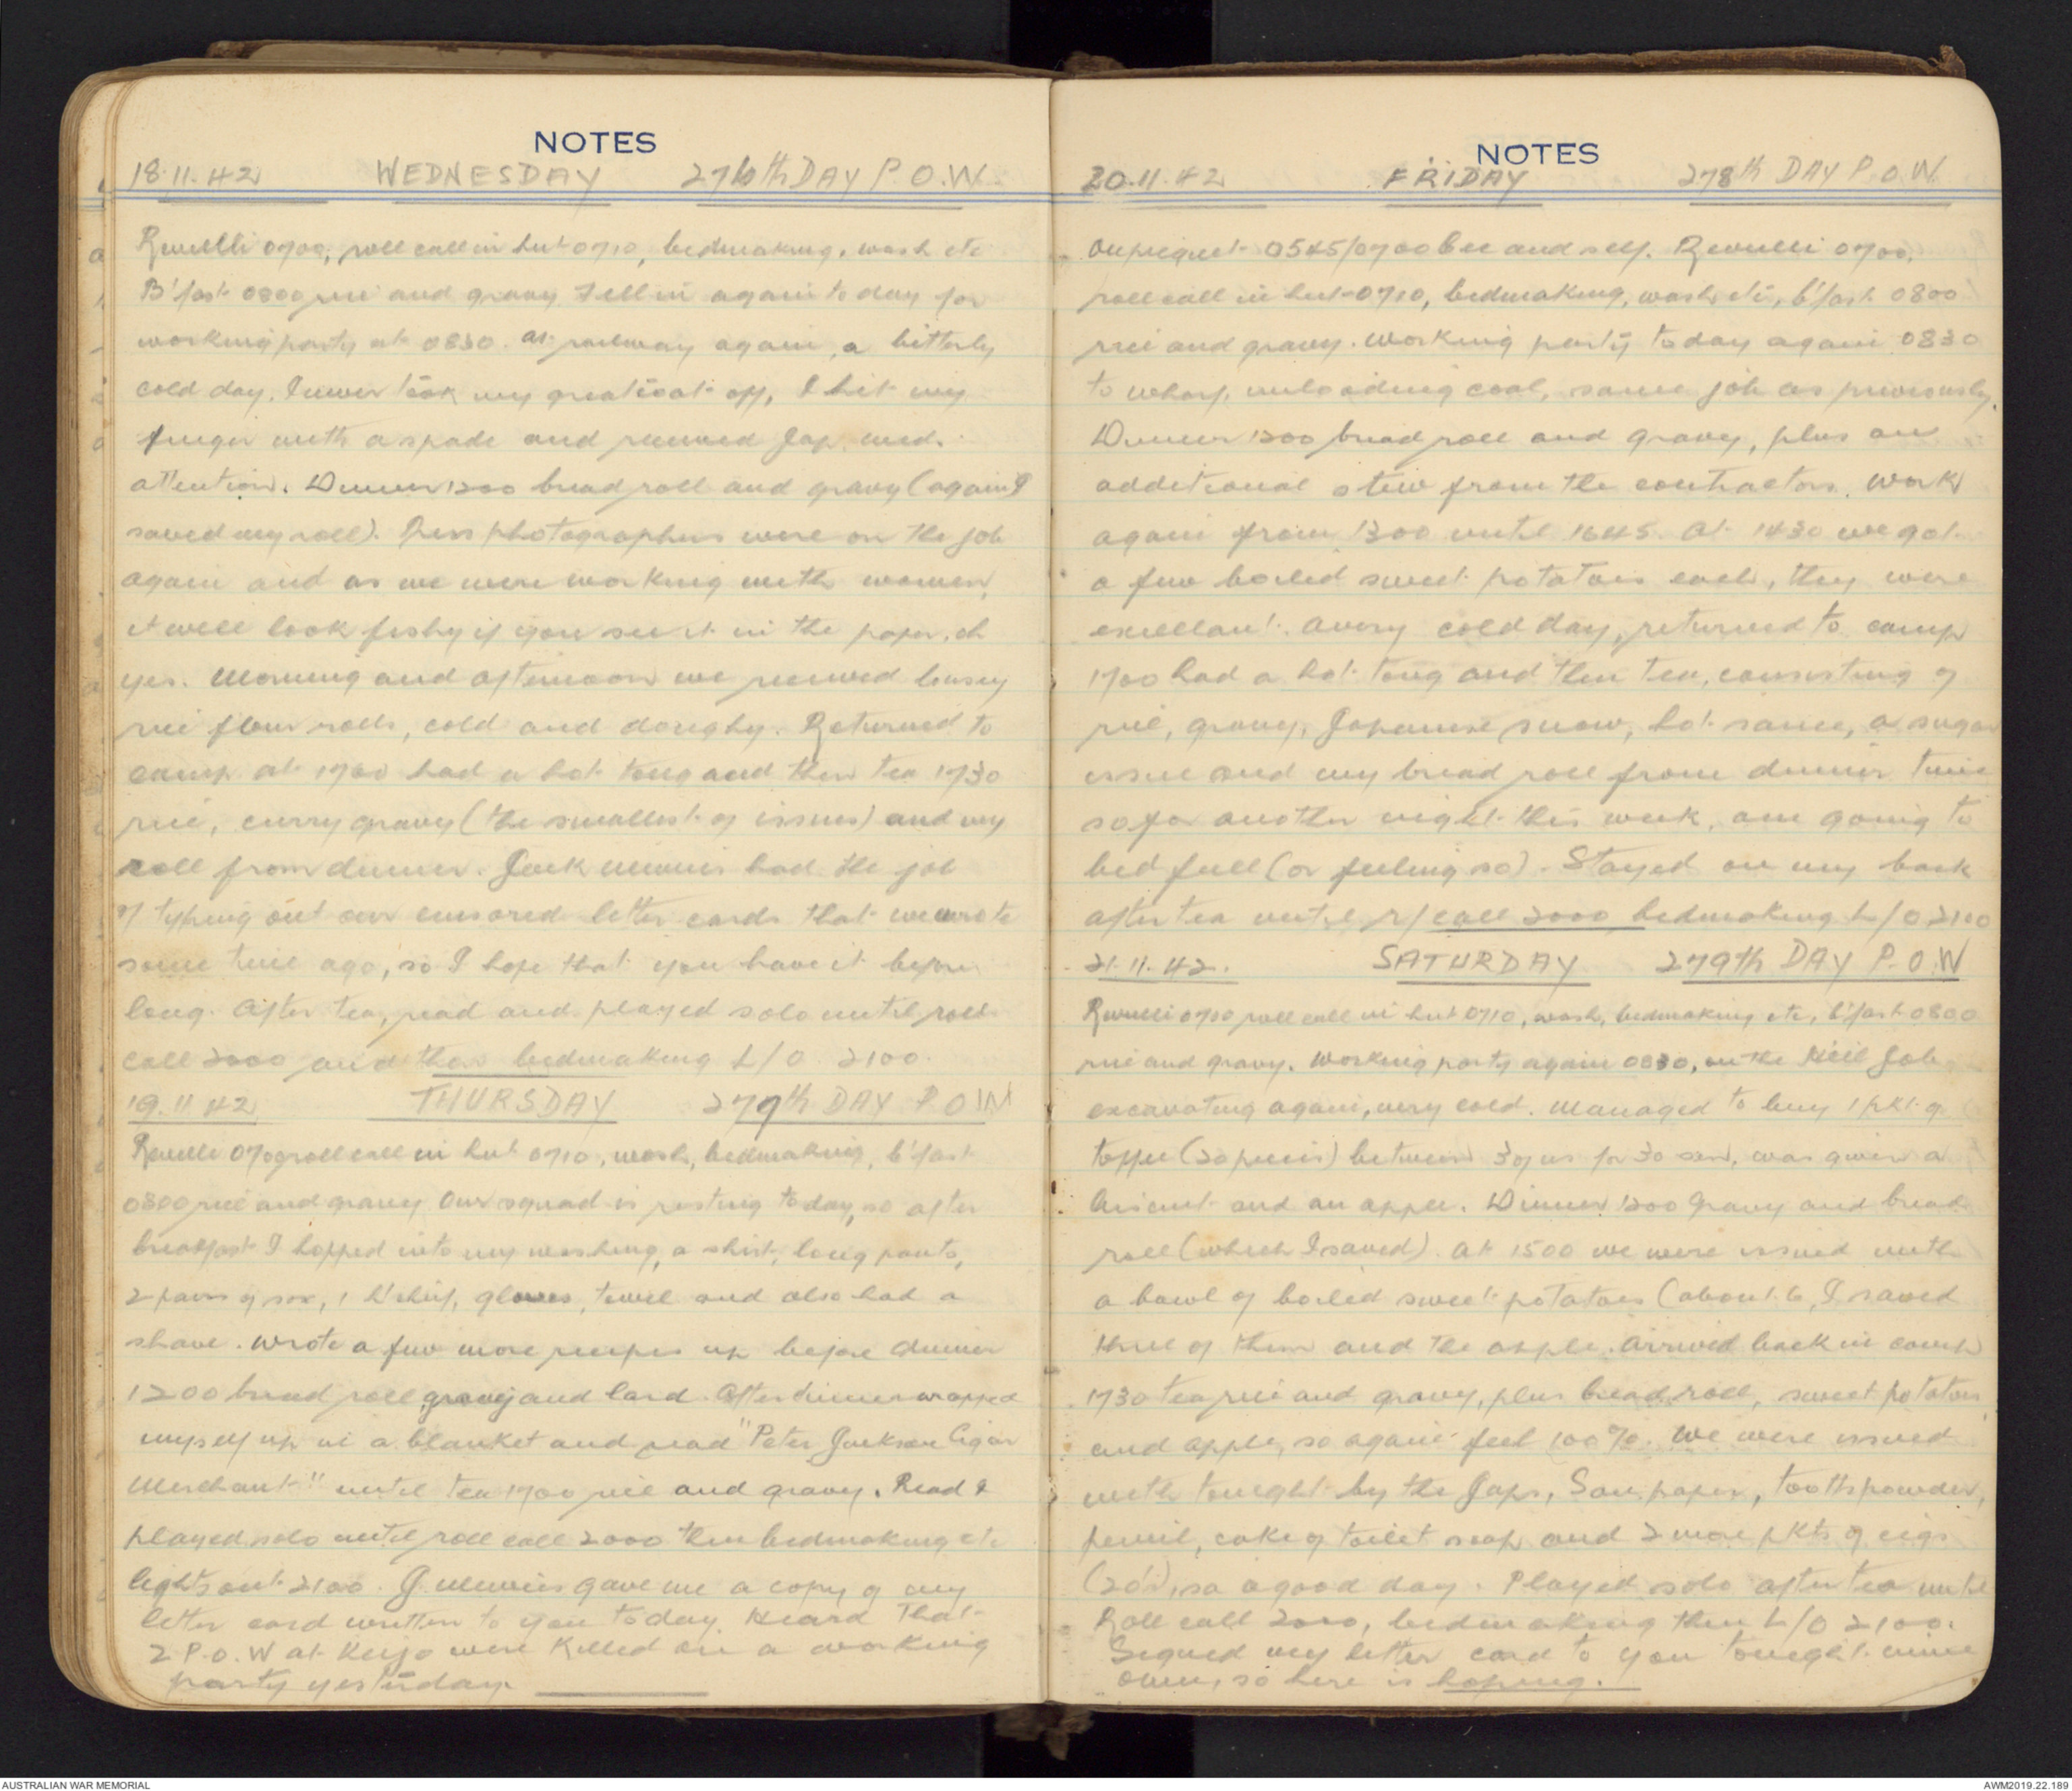 NOTES
18.11.42 WEDNESDAY 276th DAY P.O.W.
Reveilli 0700, roll call in hut 0710, bedmaking, wash etc
B'fast 0800 rice and gravy Fell in again today for
working party at 0830. at railway again, a bitterly
cold day, I never took my greatcoat off, I hit my
finger with a spade and received Jap. med.
attention. Dinner 1200 bread roll and gravy (again I
saved my roll). Press photographers were on the job
again and as we were working with women,
it will look fishy if you see it in the paper, eh
yes. Morning and afternoon we received lousy
rice flour rolls, cold and doughy. Returned to
camp at 1700 had a hot tong and then tea 1730
rice, curry gravy (the smallest of issues) and my
roll from dinner. Jack had the job
of typing out our censored letter cards that we wrote
some time ago, so I hope that you have it before
long. After tea, read and played solo until roll
call 2000 and then bedmaking L/O 2100.
19.11.42 THURSDAY 277th DAY P.O.W
Reveille 0700 roll call in hut 0710, wash, bedmaking, b'fast
0800 rice and gravy Our squad is resting today, so after
breakfast I hopped into my washing, a shirt, long pants,
2 pairs of sox, 1 h'chief, gloves, towel and also had a
shave. Wrote a few more recipes up before dinner
1200 bread roll gravy and lard. After dinner wrapped
myself up in a blanket and read "Peter Jackson Cigar
Merchant" until tea 1700 rice and gravy. Read &
played solo until roll call 2000 then bedmaking etc
lights out 2100. J. gave me a copy of my
letter card written to you today. Heard that
2 P.O.W at Keijo were killed on a working
party yesterday.
NOTES
20.11.42 FRIDAY 278th DAY P.O.W.
On piquet 0545/0700 Bee and self. Reveilli 0700,
roll call in hut 0710, bedmaking, wash etc, b'fast 0800
rice and gravy. Working party today again 0830
to wharf, unloading coal, same job as previously.
Dinner 1200 bread roll and gravy, plus an
additional stew from the contractors. Work
again from 1300 until 1645. At 1430 we got
a few boiled sweet potatoes each, they were
excellant. A very cold day, returned to camp
1700 had a hot tong and then tea, consisting of
rice, gravy, Japanese snow, hot sauce, a sugar
issue and my bread roll from dinner time
so for another night this week, am going to
bed full (or feeling so). Stayed on my back
after tea until r/call 2000 bedmaking L/O 2100
21.11.42. SATURDAY 279th DAY P.O.W
Reveilli 0700 roll call in hut 0710, wash, bedmaking etc, b'fast 0800
rice and gravy. Working party again 0830, on the Hill Job
excavating again, very cold. Managed to buy 1 pkt of
toffee (20 pieces) between 3 of us for 30 sen, was given a
biscuit and an apple. Dinner 1200 gravy and bread
roll (which I saved). At 1500 we were issued with
a bowl of boiled sweet potatoes (about 6, I saved
three of them and the apple. Arrived back in camp
1730 tea rice and gravy, plus bread roll, sweet potatoes
and apple, so again feel 100%. We were issued
with tonight by the Japs, San. paper, toothpowder,
pencil, cake of toilet soap and 2 more pkts of cigs
(20's), so a good day. Played solo after tea until
Roll call 2000, bedmaking then L/O 2100.
Signed my letter card to you tonight mine
own, so here is hoping.
AUSTRALIAN WAR MEMORIAL
AWM2019.22.189